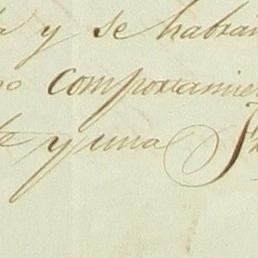 y se habrán
comportamien
y una